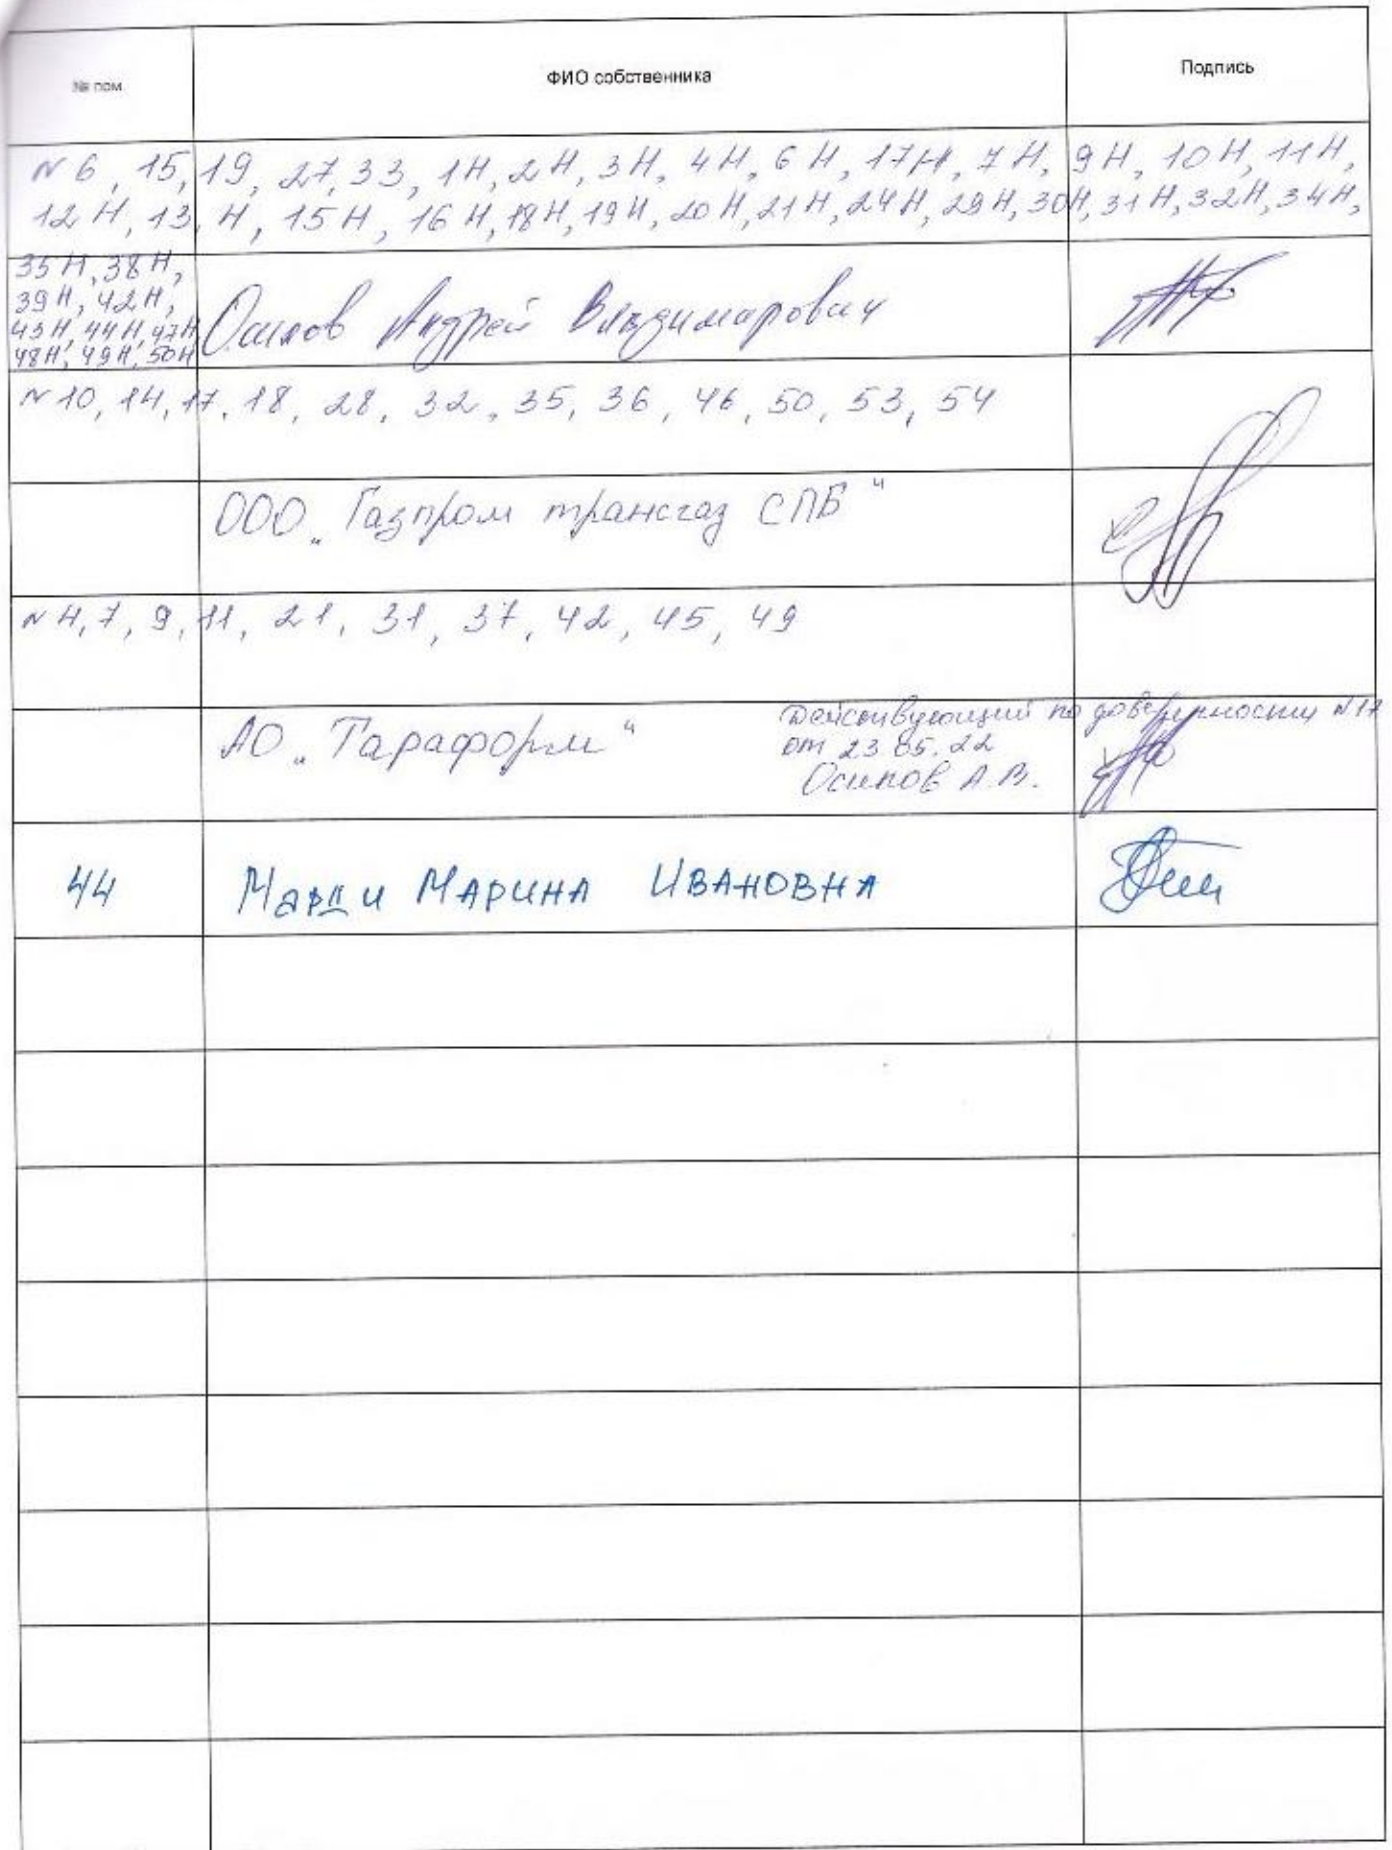 № пом.
ФИО собственника
Подпись
№ 6, 15, 19, 27, 33, 1Н, 2Н, 3Н, 4Н, 6Н, 17Н, 7Н, 9Н, 10Н, 11Н,
12Н, 13Н, 15Н, 16Н, 18Н, 19Н, 20Н, 21Н, 24Н, 29Н, 30Н, 31Н, 32Н, 34Н,
35Н, 38Н,
39Н, 42Н,
43Н, 44Н, 47Н
48Н, 49Н, 50Н
Осипов Андрей Владимирович
№ 10, 14, 17, 18, 28, 32, 35, 36, 46, 50, 53, 54
ООО „Газпром трансгаз СПБ“
№ 4, 7, 9, 11, 21, 31, 37, 42, 45, 49
АО „Тараформ“
Действующий по доверенности №17
от 23.05.22
Осипов А.В.
44
МАРИНА ИВАНОВНА